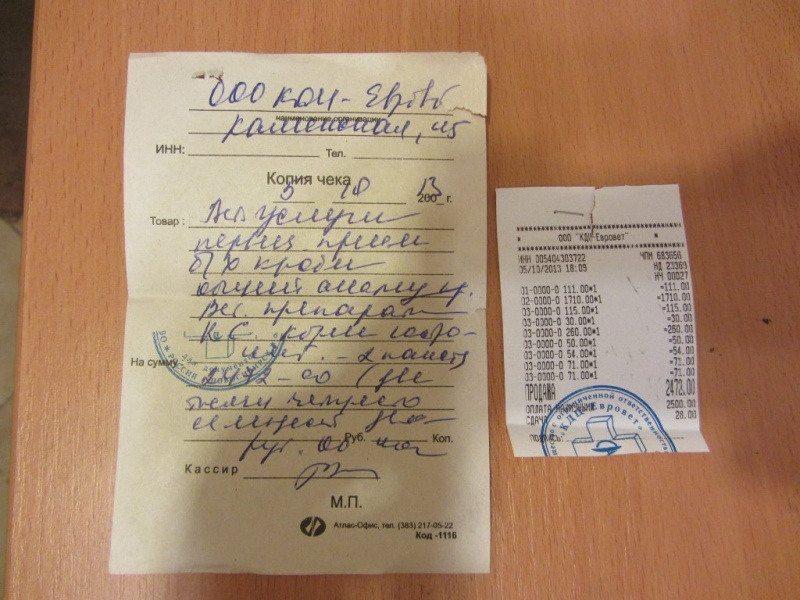 ООО КДЦ - Евровет
наименование организации
Каменская,
ИНН: Тел.
Копия чека
5 10 13
200 г.
Товар : Вет услуги
первич прием
б/х крови
общий анализ кр.
Вет. препарат
К.С. корм
- 2 пакета
На сумму 2472-00 (две
тысячи четыреста
семьдесят два
Руб. Коп.
руб. 00 коп
Кассир
М.П.
Атлас-Офис, тел. (383) 217-05-22
Код -1116
ООО "КДЦ-Евровет"
ИНН 005404303722 ЧПМ 683656
05/10/2013 18:09 НД 23369
НЧ 00027
01-0000-0 111.00*1 =111.00
02-0000-0 1710.00*1 =1710.00
03-0000-0 115.00*1 =115.00
03-0000-0 30.00*1 =30.00
03-0000-0 260.00*1 =260.00
03-0000-0 50.00*1 =50.00
03-0000-0 54.00*1 =54.00
03-0000-0 71.00*1 =71.00
03-0000-0 71.00*1 =71.00
ПРОДАЖА 2472.00
ОПЛАТА НАЛИЧНЫМИ 2500.00
СДАЧА 28.00
ограниченной ответственностью
"КДЦ-Евровет"